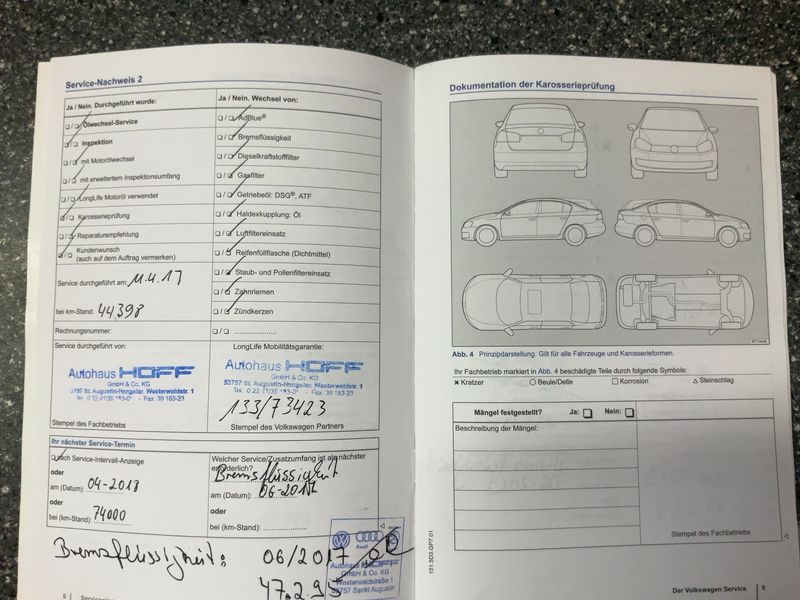 Service-Nachweis 2
Ja / Nein. Durchgeführt wurde:
Ölwechsel-Service
Inspektion
mit Motorölwechsel
mit erweitertem Inspektionsumfang
LongLife Motoröl verwendet
Karosserieprüfung
Reparaturempfehlung
Kundenwunsch
(auch auf dem Auftrag vermerken)
Service durchgeführt am: 11.4.17
bei km-Stand: 44398
Rechnungsnummer:
Ja / Nein. Wechsel von:
AdBlue®
Bremsflüssigkeit
Dieselkraftstofffilter
Gasfilter
Getriebeöl: DSG®, ATF
Haldexkupplung: Öl
Luftfiltereinsatz
Reifenfüllflasche (Dichtmittel)
Staub- und Pollenfiltereinsatz
Zahnriemen
Zündkerzen
Service durchgeführt von:
Autohaus HOFF
GmbH & Co. KG
53757 St. Augustin-Hangelar, Westerwaldstr. 1
Stempel des Fachbetriebs
LongLife Mobilitätsgarantie:
Autohaus HOFF
GmbH & Co. KG
53757 St. Augustin-Hangelar, Westerwaldstr. 1
133/73423
Stempel des Volkswagen Partners
Ihr nächster Service-Termin
nach Service-Intervall-Anzeige
oder
am (Datum): 04-2018
oder
bei (km-Stand): 74000
Welcher Service/Zusatzumfang ist als nächster
erforderlich?
Bremsflüssigkeit
am (Datum): 06-2017
oder
bei (km-Stand):
Bremsflüssigkeit: 06/2017
47.295
Audi
Autohaus HOFF
GmbH & Co. KG
Westerwaldstraße 1
53757 Sankt Augustin
6
Dokumentation der Karosserieprüfung
Abb. 4 Prinzipdarstellung. Gilt für alle Fahrzeuge und Karosserieformen.
Ihr Fachbetrieb markiert in Abb. 4 beschädigte Teile durch folgende Symbole:
Kratzer Beule/Delle Korrosion Steinschlag
Mängel festgestellt? Ja: Nein:
Beschreibung der Mängel:
Stempel des Fachbetriebs
151.5D3.GP7.01
Der Volkswagen Service 9